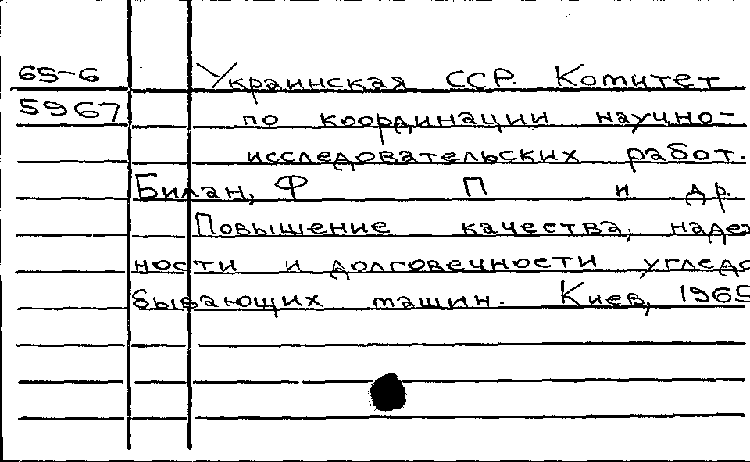 65-6 Украинская ССР. Комитет
5967 по координации научно-
исследовательских работ.
Билан, Ф П и др.
Повышение качества, надеж
ности и долговечности угледо
бывающих машин. Киев, 1965